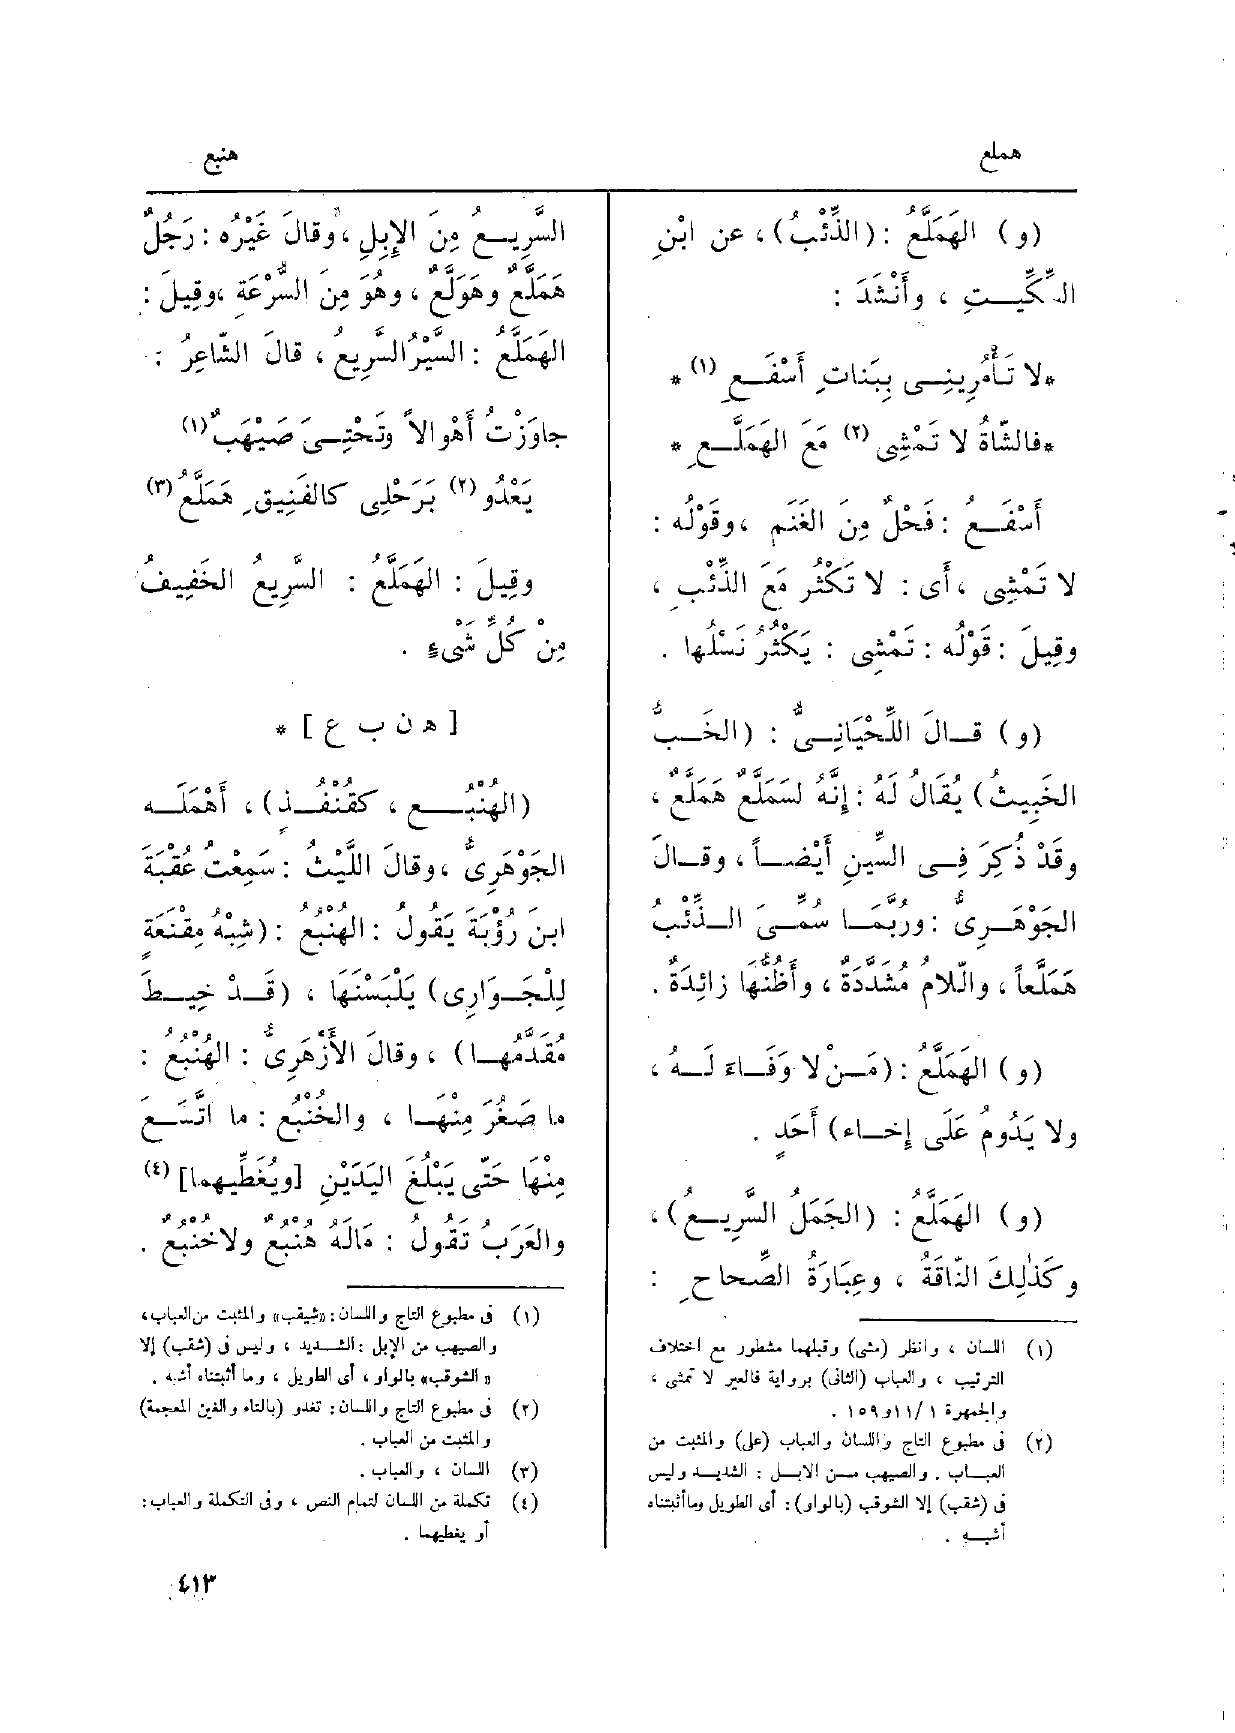 هملع
هنبع
(و) الهَمَلَّعُ : (الذِّئْبُ) ، عن ابْنِ
السِّكِّيتِ ، وأَنْشَدَ :
*لا تَأْمُرِينِى بِبَناتِ أَسْفَعِ (١) *
*فالشّاةُ لا تَمْشِى (٢) مَعَ الهَمَلَّعِ *
أَسْفَعُ : فَحْلٌ مِنَ الغَنَمِ ، وقَوْلُه :
لا تَمْشِى ، أَى : لا تَكْثُر مَعَ الذِّئْبِ ،
وقِيلَ : قَوْلُه : تَمْشِى : يَكْثُرُ نَسْلُها .
(و) قالَ اللِّحْيَانِىُّ : (الخَبُّ
الخَبِيثُ) يُقَالُ لَهُ : إِنَّهُ لسَمَلَّعٌ هَمَلَّعٌ ،
وقَدْ ذُكِرَ فِى السِّينِ أَيْضاً ، وقالَ
الجَوْهَرِىُّ : ورُبَّمَا سُمِّىَ الذِّئْبُ
هَمَلَّعاً ، والّلامُ مُشَدَّدَةٌ ، وأَظُنُّهَا زائِدَةٌ .
(و) الهَمَلَّعُ : (مَنْ لا وَفَاءَ لَهُ ،
ولا يَدُومُ عَلَى إِخاء) أَحَدٍ .
(و) الهَمَلَّعُ : (الجَمَلُ السَّرِيعُ) ،
وكَذٰلِكَ النّاقَةُ ، وعِبَارَةُ الصِّحاحِ :
(١) اللسان ، وانظر (مشى) وقبلهما مشطور مع اختلاف
الترتيب ، والعباب (الثانى) برواية فالعير لا تمشى ،
والجمهرة ١ /١١و١٥٩ .
(٢) فى مطبوع التاج واللسان والعباب (على) والمثبت من
العباب . والصيهب من الابل : الشديد وليس
فى (شقب) إلا الشوقب (بالواو) : أى الطويل وما أثبتناه
أشبه .
السَّرِيعُ مِنَ الإِبِلِ ، وقالَ غَيْرُه : رَجُلٌ
هَمَلَّعٌ وهَوَلَّعٌ ، وهُوَ مِنَ السُّرْعَةِ ، وقِيلَ :
الهَمَلَّعُ : السَّيْرُ السَّرِيعُ ، قالَ الشّاعِرُ :
جاوَزْتُ أَهْوالاً وتَحْتِىَ صَيْهَبٌ (١)
يَعْدُو (٢) بَرَحْلِى كالفَنِيقِ هَمَلَّعُ (٣)
وقِيلَ : الهَمَلَّعُ : السَّرِيعُ الخَفِيفُ
مِنْ كُلِّ شَىْءٍ .
[ ه ن ب ع ] *
(الهُنْبُع ، كقُنْفُذ) ، أَهْمَلَه
الجَوْهَرِىُّ ، وقالَ اللَّيْثُ : سَمِعْتُ عُقْبَةَ
ابنَ رُؤْبَةَ يَقُولُ : الهُنْبُعُ : (شِبْهُ مِقْنَعَةٍ
لِلْجَوَارِى) يَلْبَسْنَهَا ، (قَدْ خِيطَ
مُقَدَّمُها) ، وقالَ الأَزْهَرِىُّ : الهُنْبُعُ :
ما صَغُرَ مِنْهَا ، والخُنْبُع : ما اتَّسَعَ
مِنْهَا حَتّى يَبْلُغَ اليَدَيْنِ [ويُغَطِّيهما] (٤)
والعَرَبُ تَقُولُ : مَالَهُ هُنْبُعٌ ولا خُنْبُعٌ .
(١) فى مطبوع التاج واللسان : «شيقب» والمثبت من العباب ،
والصيهب من الإبل : الشديد ، وليس فى (شقب) إلا
« الشوقب» بالواو ، أى الطويل ، وما أثبتناه أشبه .
(٢) فى مطبوع التاج واللسان : تغدو (بالتاء والغين المعجمة)
والمثبت من العباب .
(٣) اللسان ، والعباب .
(٤) تكملة من اللسان لتمام النص ، وفى التكملة والعباب :
أو يغطيهما .
٤١٣